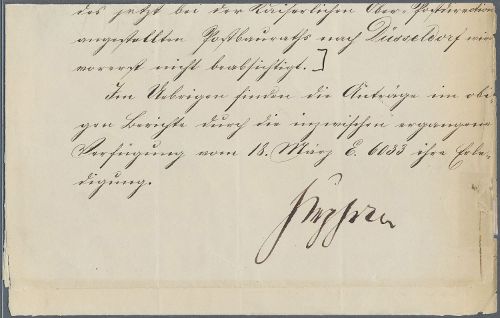 des jetzt bei der Kaiserlichen Ober-Postdirection
angestellten Postbauraths nach Düsseldorf wird
vorerst nicht beabsichtigt.]
Im Uebrigen finden die Anträge im obi-
gen Berichte durch die inzwischen ergangene
Verfügung vom 18. März E. 6083 ihre Erle-
digung.
Stephan